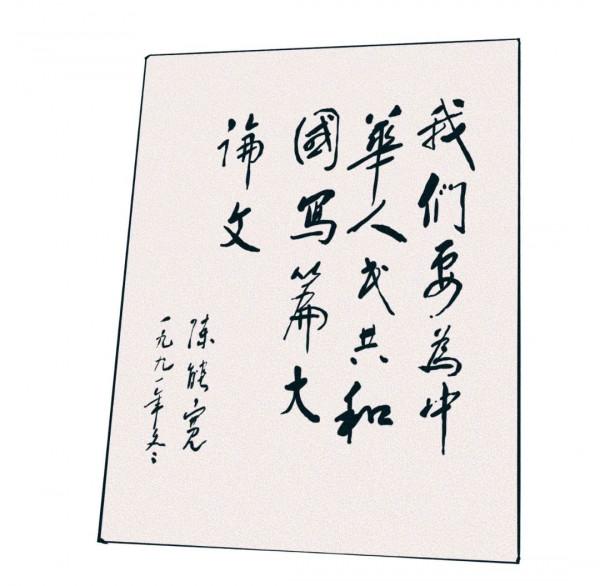 我们要為中
華人民共和
國写篇大
論文
陳能寬
一九九一年冬